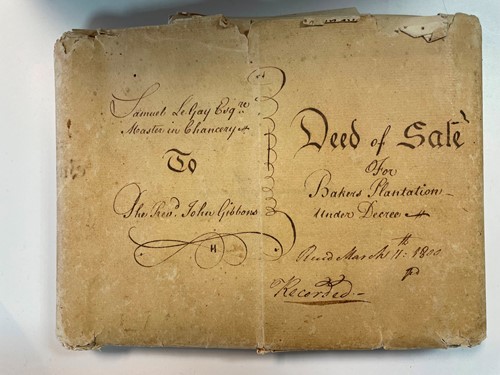 Samuel LeGay Esqre
Master in Chancery
To
The Revd. John Gibbons
Deed of Sale
For
Bakers Plantation
Under Decree
Recd March 11th 1800
Recorded